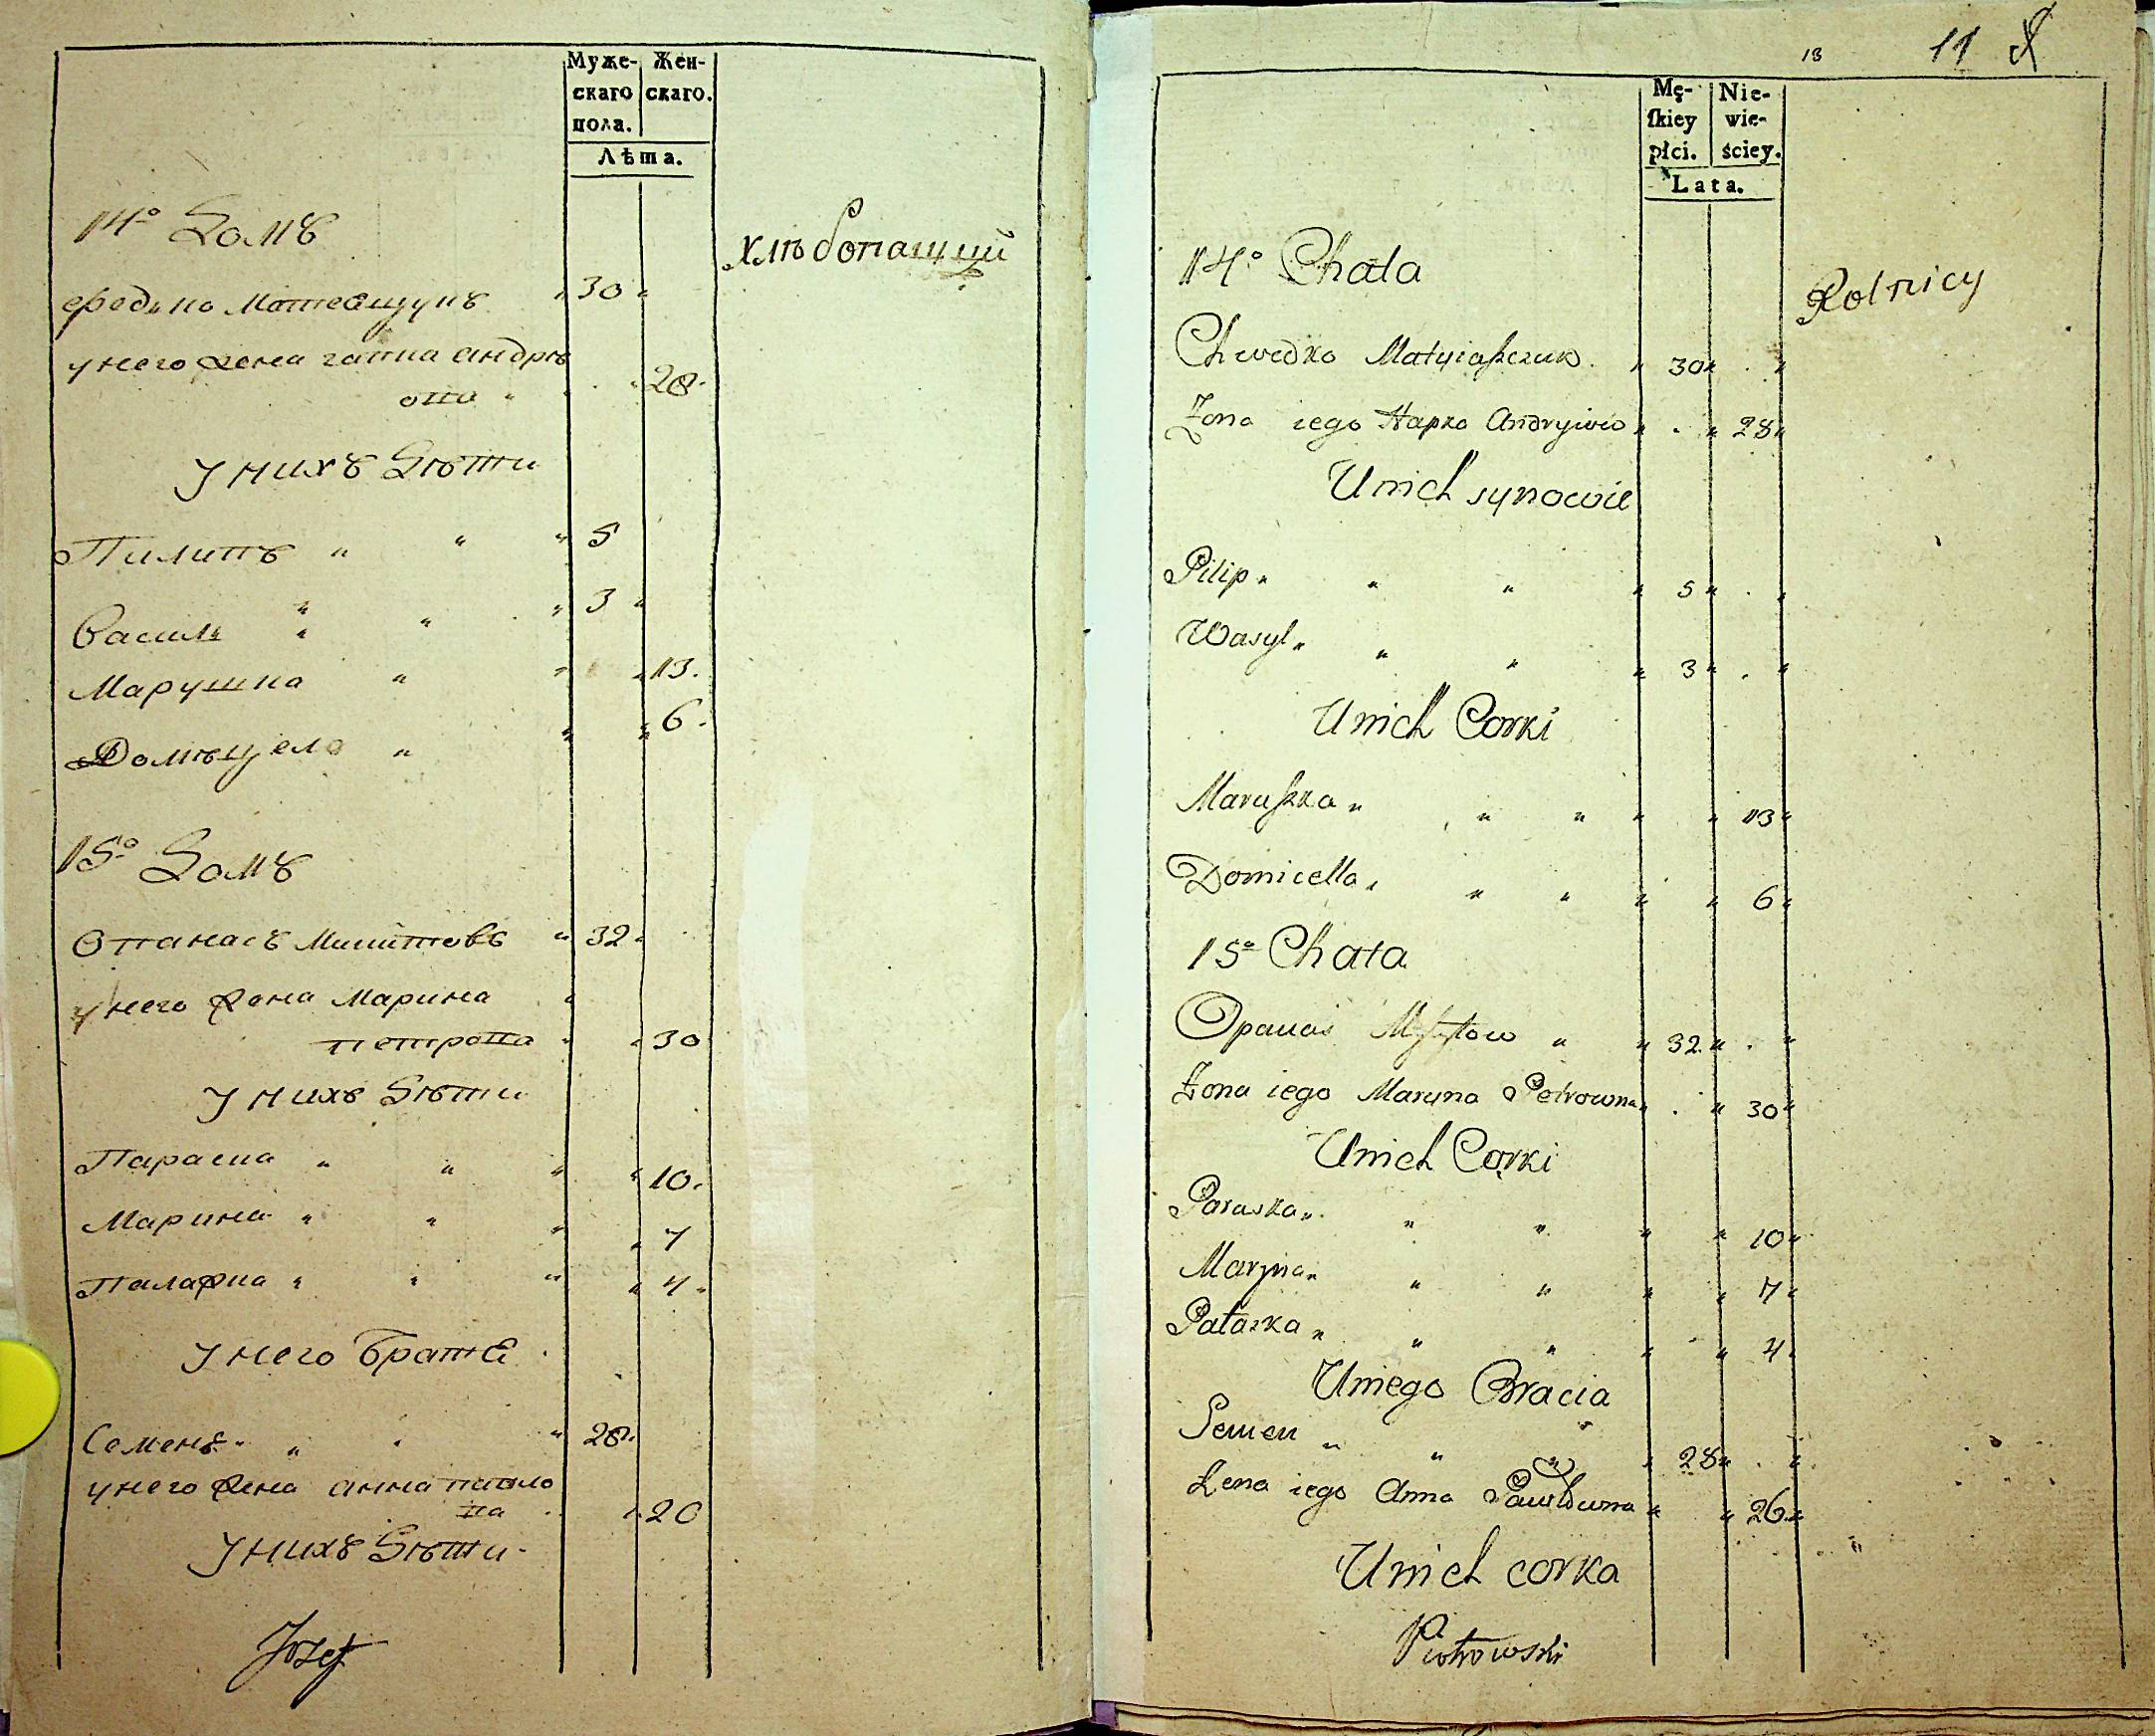 Муже-
скаго
пола.
Жен-
скаго.
Лѣта.
14º Домъ
хлѣбопащцй
Федько Матеящукъ 30
у него жена гапка андрѣ
ова 28
У нихъ Дѣти
Пилипъ 5
Василь 3
Марушка 13
Домѣцела 6
15º Домъ
Опанасъ Микитовъ 32
у него жена Марина
петрова 30
У нихъ Дѣти
Параска 10
Марина 7
Палажка 4
У него Братя
Семенъ 28
у него жена анна павло
ва 26
У нихъ Дѣти
Jozef
18 11
Mę-
ſkiey
płci.
Nie-
wie-
ściey.
Lata.
14º Chata
Rolnicy
Chwedko Matyiaszczuk 30
Żona iego Hapka Andryiwa 28
U nich synowie
Pilip 5
Wasyl 3
U nich Corki
Maruszka 13
Domicella 6
15º Chata
Opanas 32
Żona iego Maryna Petrowna 30
U nich Corki
Paraska 10
Maryna 7
Pałazka 4
U niego Bracia
Semen 28
Żena iego Anna Pawłowna 26
U nich corka
Piotrowski